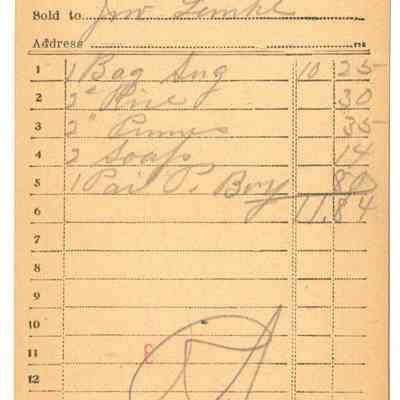 Sold to Jno Lemke
Address
1 1 Bag Sug 10 25
2 3" Rice 30
3 2" Prunes 35
4 2 Soaps 14
5 1 Pail P. 80
6 11.84
7
8
9
10
11 3
12